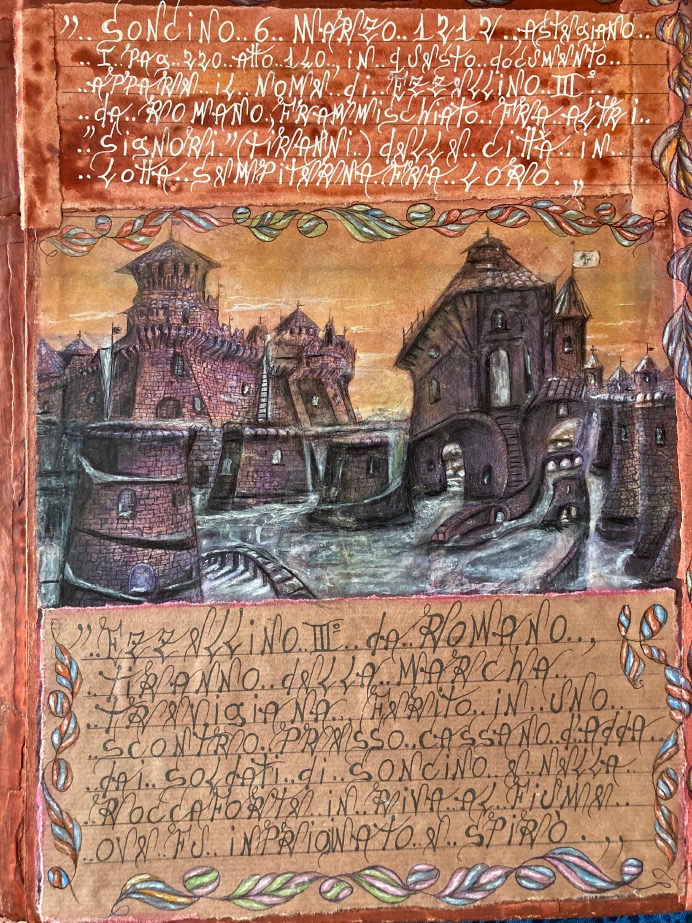 ”.. SONCINO.. 6.. MARZO.. 1212.. ASTEGIANO..
.. I.. PAG.. 220.. Atto.. 120.., iN.. QUESTO.. DOCUMENTO..
.. APPARE.. iL.. NOME.. di.. EZZELLINO.. III°..
.. da.. ROMANO.., FRAMMISCHIATO.. FRA.. ALTRI..
.. ”SIGNORI..” (TIRANNI..) dELLE.. CITTÀ.. iN..
.. LOTTA.. SEMPITERNA.. FRA.. LORO. ”
”.. EZZELLINO.. III°.. da.. ROMANO..,
.. TIRANNO.. dELLA.. MARCHA..
.. TREVIGIANA.. FERITO.. iN.. UNO..
.. SCONTRO.. PRESSO.. CASSANO.. d'AddA..
.. dAi.. SOLDATI.. di.. SONCINO.. E.. NELLA..
.. ROCCAFORTE.. iN.. RIVA.. AL.. FIUME..
.. OVE.. FU.. iNPRIGINATO.. E.. SPIRÒ.. ”